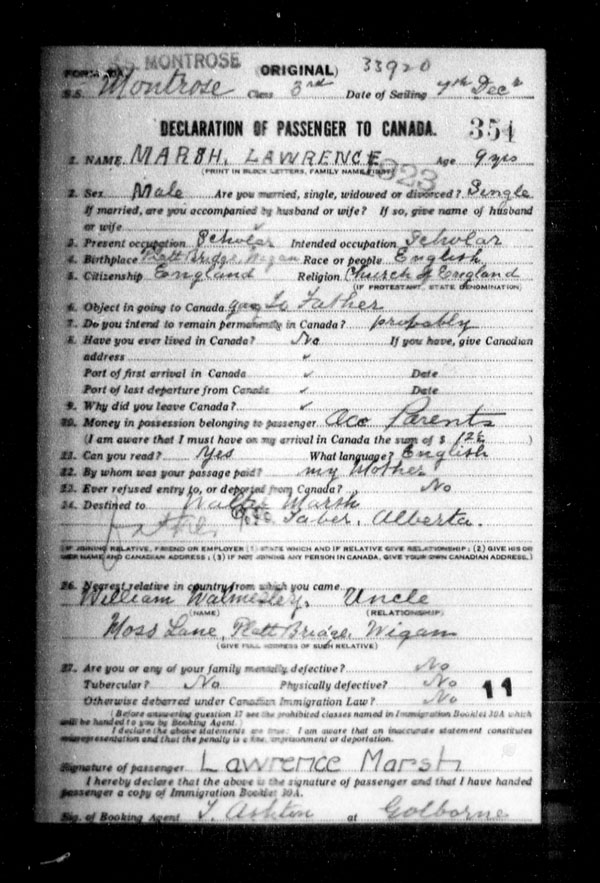 S.S. MONTROSE
FORM 30A (ORIGINAL) 33920
S.S. Montrose Class 3rd Date of Sailing 7th Decr
DECLARATION OF PASSENGER TO CANADA. 354
1. NAME MARSH, LAWRENCE Age 9 yrs
(PRINT IN BLOCK LETTERS, FAMILY NAME FIRST) 923
2. Sex Male Are you married, single, widowed or divorced? Single
If married, are you accompanied by husband or wife? If so, give name of husband
or wife
3. Present occupation Scholar Intended occupation Scholar
4. Birthplace Platt Bridge, Wigan Race or people English
5. Citizenship England Religion Church of England
(IF PROTESTANT, STATE DENOMINATION)
6. Object in going to Canada going to Father
7. Do you intend to remain permanently in Canada? probably
8. Have you ever lived in Canada? No If you have, give Canadian
address
Port of first arrival in Canada Date
Port of last departure from Canada Date
9. Why did you leave Canada?
10. Money in possession belonging to passenger acc Parents
(I am aware that I must have on my arrival in Canada the sum of $ )
11. Can you read? Yes What language? English
12. By whom was your passage paid? my Mother
13. Ever refused entry to, or deported from Canada? No
14. Destined to Walter Marsh
father Taber, Alberta.
(IF JOINING RELATIVE, FRIEND OR EMPLOYER (1) STATE WHICH AND IF RELATIVE GIVE RELATIONSHIP; (2) GIVE HIS OR
HER NAME AND CANADIAN ADDRESS; (3) IF NOT JOINING ANY PERSON IN CANADA, GIVE YOUR OWN CANADIAN ADDRESS.)
26. Nearest relative in country from which you came
William Walmesley, Uncle
(NAME) (RELATIONSHIP)
Moss Lane, Platt Bridge, Wigan
(GIVE FULL ADDRESS OF SUCH RELATIVE)
27. Are you or any of your family mentally defective? No
Tubercular? No Physically defective? No 11
Otherwise debarred under Canadian Immigration Law? No
(Before answering question 17 see the prohibited classes named in Immigration Booklet 30A which
will be handed to you by Booking Agent.)
I declare the above statements are true: I am aware that an inaccurate statement constitutes
misrepresentation and that the penalty is a fine, imprisonment or deportation.
Signature of passenger Lawrence Marsh
I hereby declare that the above is the signature of passenger and that I have handed
passenger a copy of Immigration Booklet 30A.
Sig. of Booking Agent T. Ashton at Golborne